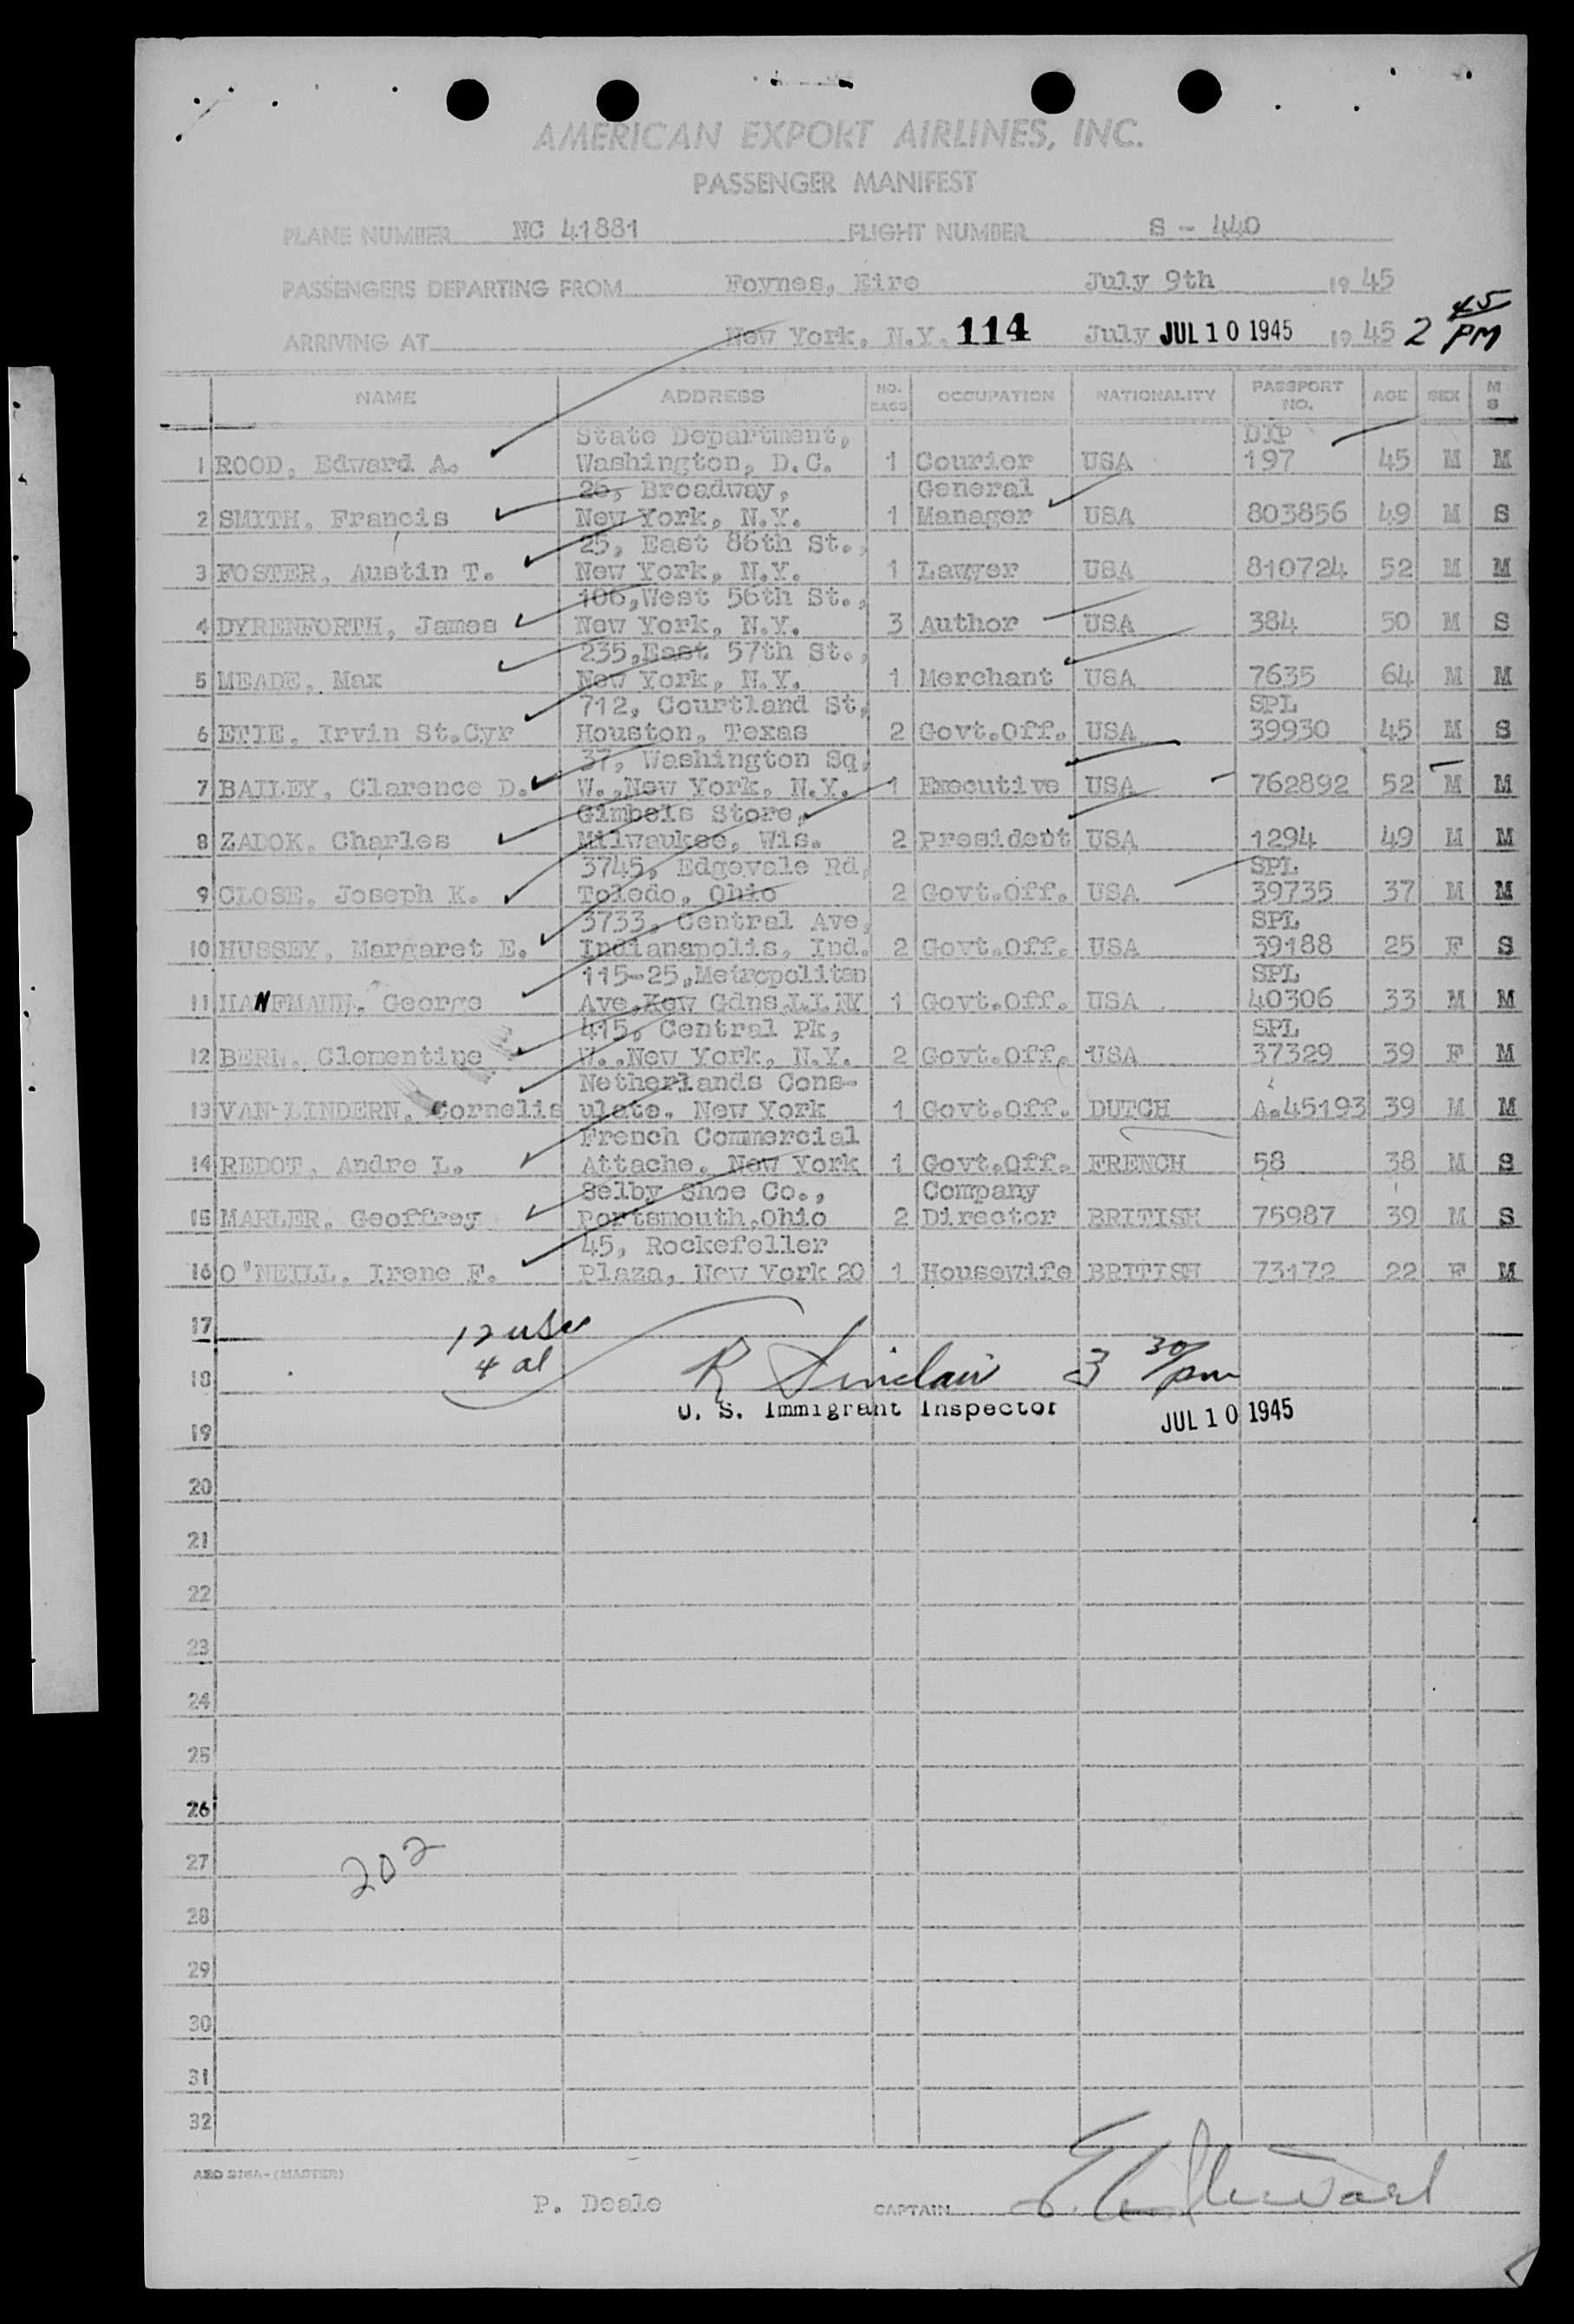 AMERICAN EXPORT AIRLINES, INC.
PASSENGER MANIFEST
PLANE NUMBER NC 41881 FLIGHT NUMBER S - 440
PASSENGERS DEPARTING FROM Foynes, Eire July 9th 19 45
ARRIVING AT New York, N.Y. 114 July JUL 10 1945 19 45 2 45 PM
NAME ADDRESS NO. BAGS OCCUPATION NATIONALITY PASSPORT NO. AGE SEX M S
State Department, DIP
1 ROOD, Edward A. Washington, D.C. 1 Courier USA 197 45 M M
26, Broadway, General
2 SMITH, Francis New York, N.Y. 1 Manager USA 803856 49 M S
25, East 86th St.,
3 FOSTER, Austin T. New York, N.Y. 1 Lawyer USA 810724 52 M M
106,West 56th St.,
4 DYRENFORTH, James New York, N.Y. 3 Author USA 384 50 M S
235,East 57th St.,
5 MEADE, Max New York, N.Y. 1 Merchant USA 7635 64 M M
712, Courtland St, SPL
6 ETIE, Irvin St.Cyr Houston, Texas 2 Govt.Off. USA 39930 45 M S
37, Washington Sq,
7 BAILEY, Clarence D. W.,New York, N.Y. 1 Executive USA 762892 52 M M
Gimbels Store,
8 ZADOK, Charles Milwaukee, Wis. 2 President USA 1294 49 M M
3745, Edgevale Rd, SPL
9 CLOSE, Joseph K. Toledo, Ohio 2 Govt.Off. USA 39735 37 M M
3733, Central Ave, SPL
10 HUSSEY, Margaret E. Indianapolis, Ind. 2 Govt.Off. USA 39188 25 F S
115-25,Metropolitan SPL
11 HANFMANN, George Ave,Kew Gdns,L.I.NY 1 Govt.Off. USA 40306 33 M M
415, Central Pk, SPL
12 BERN, Clementine W.,New York, N.Y. 2 Govt.Off. USA 37329 39 F M
Netherlands Cons-
13 VAN-LINDERN, Cornelis ulate, New York 1 Govt.Off. DUTCH A.45193 39 M M
French Commercial
14 REDOT, Andre L. Attache, New York 1 Govt.Off. FRENCH 58 38 M S
Selby Shoe Co., Company
15 MARLER, Geoffrey Portsmouth,Ohio 2 Director BRITISH 75987 39 M S
45, Rockefeller
16 O'NEILL, Irene F. Plaza, New York 20 1 Housewife BRITISH 73172 22 F M
17
12 USC
4 al
18 R Sinclair 3 30/pm
U. S. Immigrant Inspector JUL 10 1945
19
20
21
22
23
24
25
26
27 202
28
29
30
31
32
AEO 218A-(MASTER)
P. Deale CAPTAIN